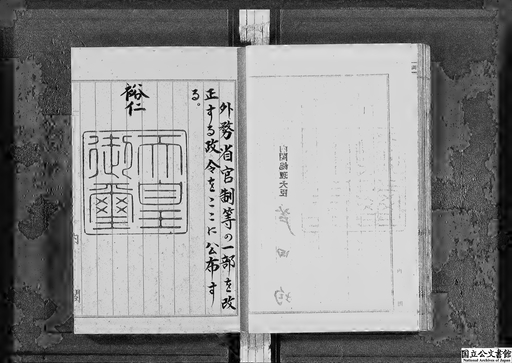 外務省官制等の一部を改
正する政令をここに公布す
る。
裕仁
天皇
御璽
内閣総理大臣
国立公文書館
National Archives of Japan